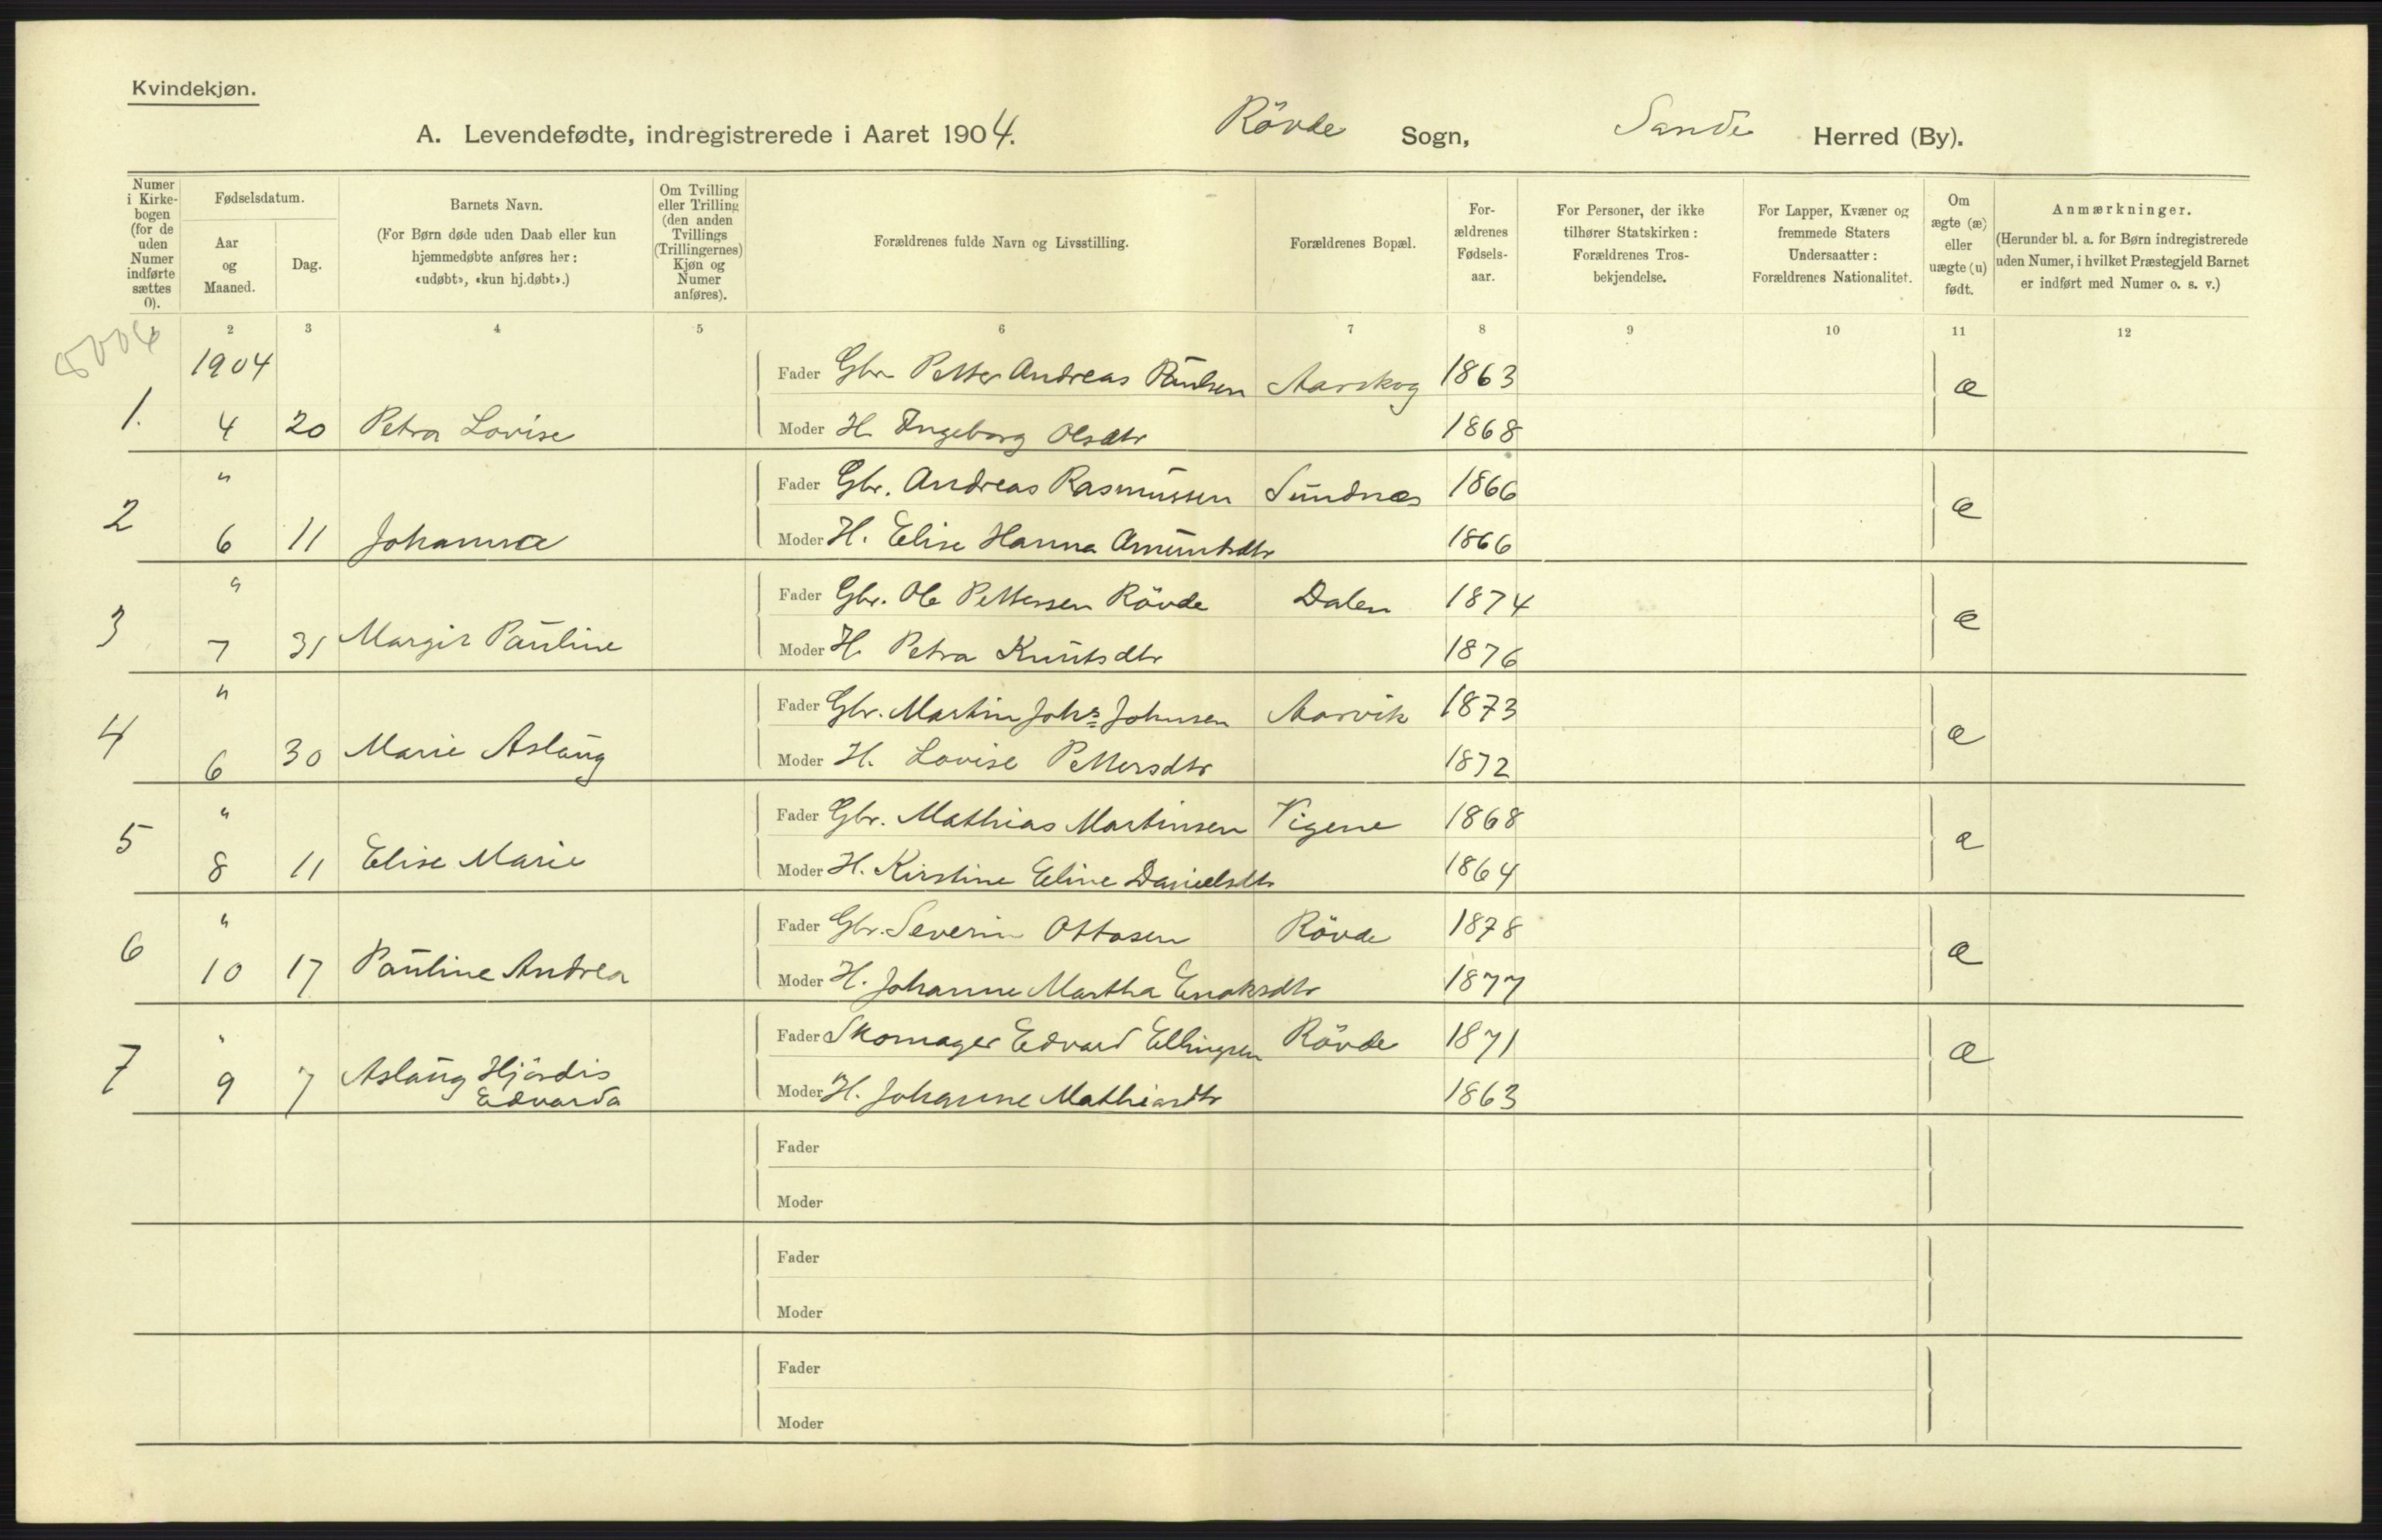 Kvindekjøn.
A. Levendefødte, indregistrerede i Aaret 1904. Rövde Sogn, Sande Herred (By).
Numer i Kirkebogen (for de uden Numer indførte sættes 0).
Fødselsdatum.
Aar og Maaned.
Dag.
Barnets Navn.
(For Børn døde uden Daab eller kun hjemmedøbte anføres her: «udøbt», «kun hj.døbt».)
Om Tvilling eller Trilling (den anden Tvillings (Trillingernes) Kjøn og Numer anføres).
Forældrenes fulde Navn og Livsstilling.
Forældrenes Bopæl.
Forældrenes Fødselsaar.
For Personer, der ikke tilhører Statskirken: Forældrenes Trosbekjendelse.
For Lapper, Kvæner og fremmede Staters Undersaatter: Forældrenes Nationalitet.
Om ægte (æ) eller uægte (u) født.
Anmærkninger.
(Herunder bl. a. for Børn indregistrerede uden Numer, i hvilket Præstegjeld Barnet er indført med Numer o. s. v.)
2 3 4 5 6 7 8 9 10 11 12
1904 Fader Gbr Petter Andreas Paulsen Aarskog 1863 æ
1. 4 20 Petra Lovise Moder H. Ingeborg Olsdtr 1868
" Fader Gbr. Andreas Rasmussen Sundnæs 1866 æ
2 6 11 Johanna Moder H. Elise Hanna Amundsdtr 1866
" Fader Gbr. Ole Pettersen Rövde Dalen 1874 æ
3 7 31 Margit Pauline Moder H. Petra Knutsdtr 1876
" Fader Gbr. Martin Johs Johnsen Aarvik 1873 æ
4 6 30 Marie Aslaug Moder H. Lovise Pettersdtr 1872
" Fader Gbr. Mathias Martinsen Vigene 1868 æ
5 8 11 Elise Marie Moder H. Kirstine Eline Danielsdtr 1864
" Fader Gbr. Severin Ottosen Rövde 1878 æ
6 10 17 Pauline Andrea Moder H. Johanne Martha Enoksdtr 1877
" Fader Skomager Edvard Ellingsen Rövde 1871 æ
7 9 7 Aslaug Hjördis Edvarda Moder H. Johanne Mathiasdtr 1863
Fader
Moder
Fader
Moder
Fader
Moder